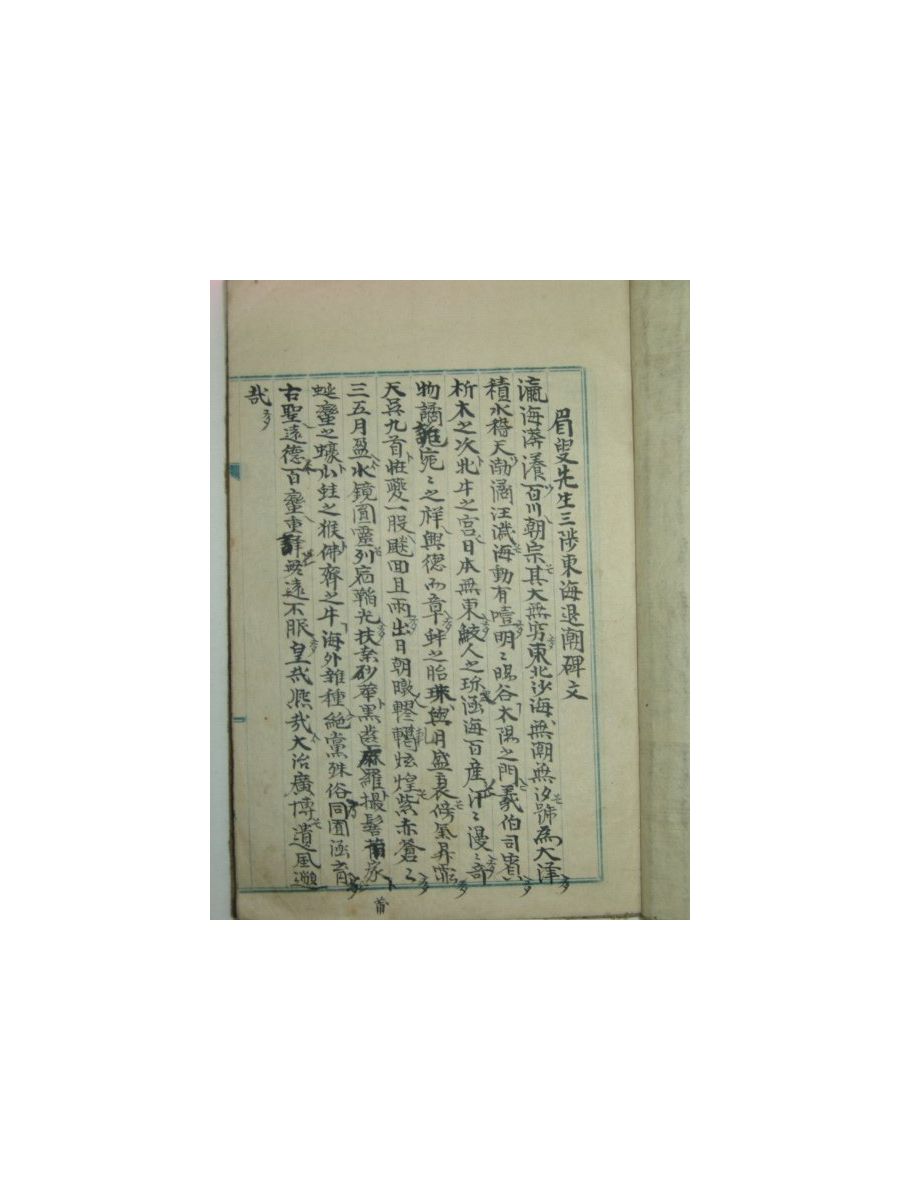 眉叟先生三陟東海退潮碑文
瀛海漭瀁百川朝宗其大無窮東北沙海無潮無汐號為大澤
積水稽天渤潏汪濊海動有曀明〻暘谷太陽之門羲伯司賓
析木之次北牛之宮日本無東鮫人之珎涵海百産汗〻漫〻奇
物譎詭宛〻之祥興德而章蚌之胎珠與月盛衰傍氣昇霏
天吳九首恠夔一股颷回且雨出日朝暾轇轕炫煌紫赤蒼〻
三五月盈水鏡圓靈列宿韜光扶桑砂華黑齒麻羅撮髻莆家
蜒蠻之蠔爪蛙之猴佛齊之牛海外雜種絶黨殊俗同囿涵育
古聖遠德百蠻重譯無遠不服皇哉熈哉大治廣博遺風邈
哉
莆